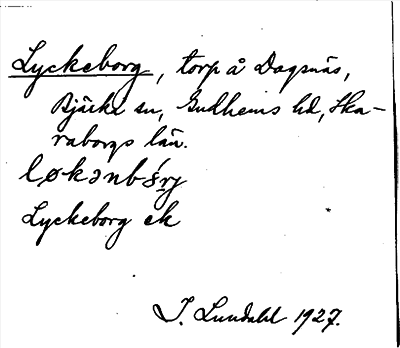 Lyckeborg, torp å Dagsnäs,
Bjärke sn, Gudhems hd, Ska-
raborgs län.
Lyckeborg ek
I. Lundahl 1927.